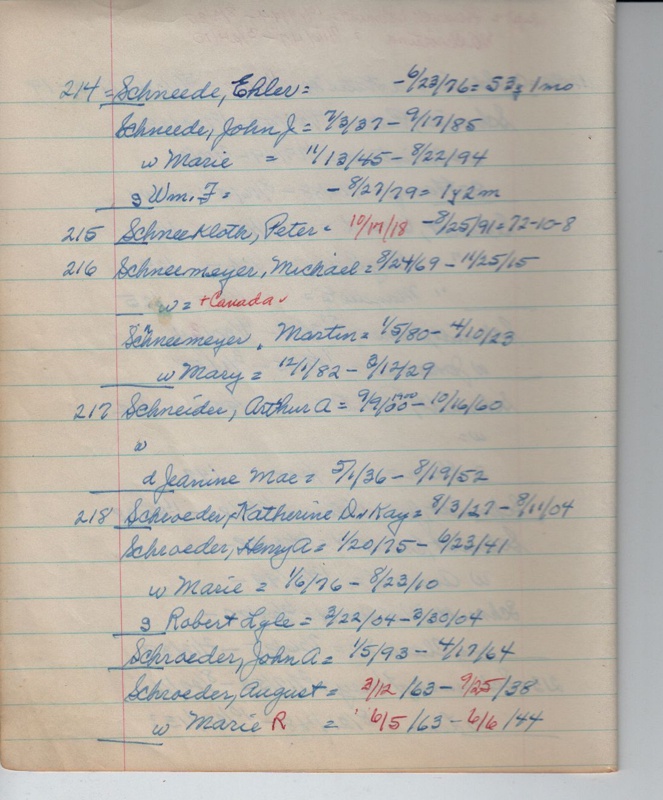 214 = Schneede, Ehler = - 6/23/76 = 53y 1mo
Schneede, John J = 7/3/37 - 9/17/85
w Marie = 11/13/45 - 8/22/94
s Wm. F = - 8/27/79 = 1y 2m
215 Schneekloth, Peter = 10/17/18 - 8/25/91 = 72-10-8
216 Schneemeyer, Michael = 8/24/69 - 11/25/15
w = + Canada
Schneemeyer, Martin = 1/5/80 - 4/10/23
w Mary = 12/1/82 - 3/12/29
217 Schneider, Arthur A = 9/9/00 1900 - 10/16/60
w
d Jeanine Mae = 5/1/36 - 8/19/52
218 Schroeder, Katherine D. Kay = 8/3/27 - 8/11/04
Schroeder, Henry A = 1/20/75 - 6/23/41
w Marie = 1/6/76 - 8/23/10
s Robert Lyle = 3/22/04 - 3/30/04
Schroeder, John A = 1/5/93 - 4/17/64
Schroeder, August = 3/12/63 - 9/25/38
w Marie R = 6/5/63 - 6/6/44